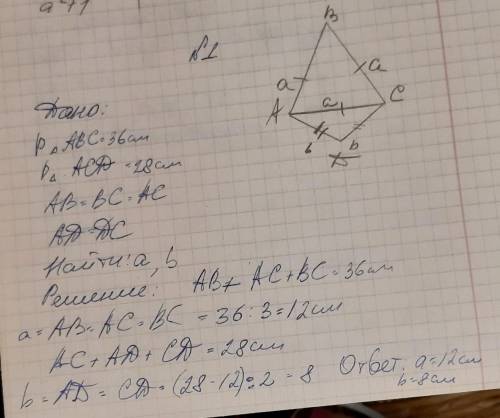 а 11
№1
B
a
a
A
a
C
b
b
D
Дано:
P△ ABC=36см
P△ ACD=28см
AB=BC=AC
AD=DC
Найти: a, b
Решение: AB+AC+BC=36см
a=AB=AC=BC=36:3=12см
AC+AD+CD=28см
b=AD=CD=(28-12):2=8 Ответ: a=12см
b=8см